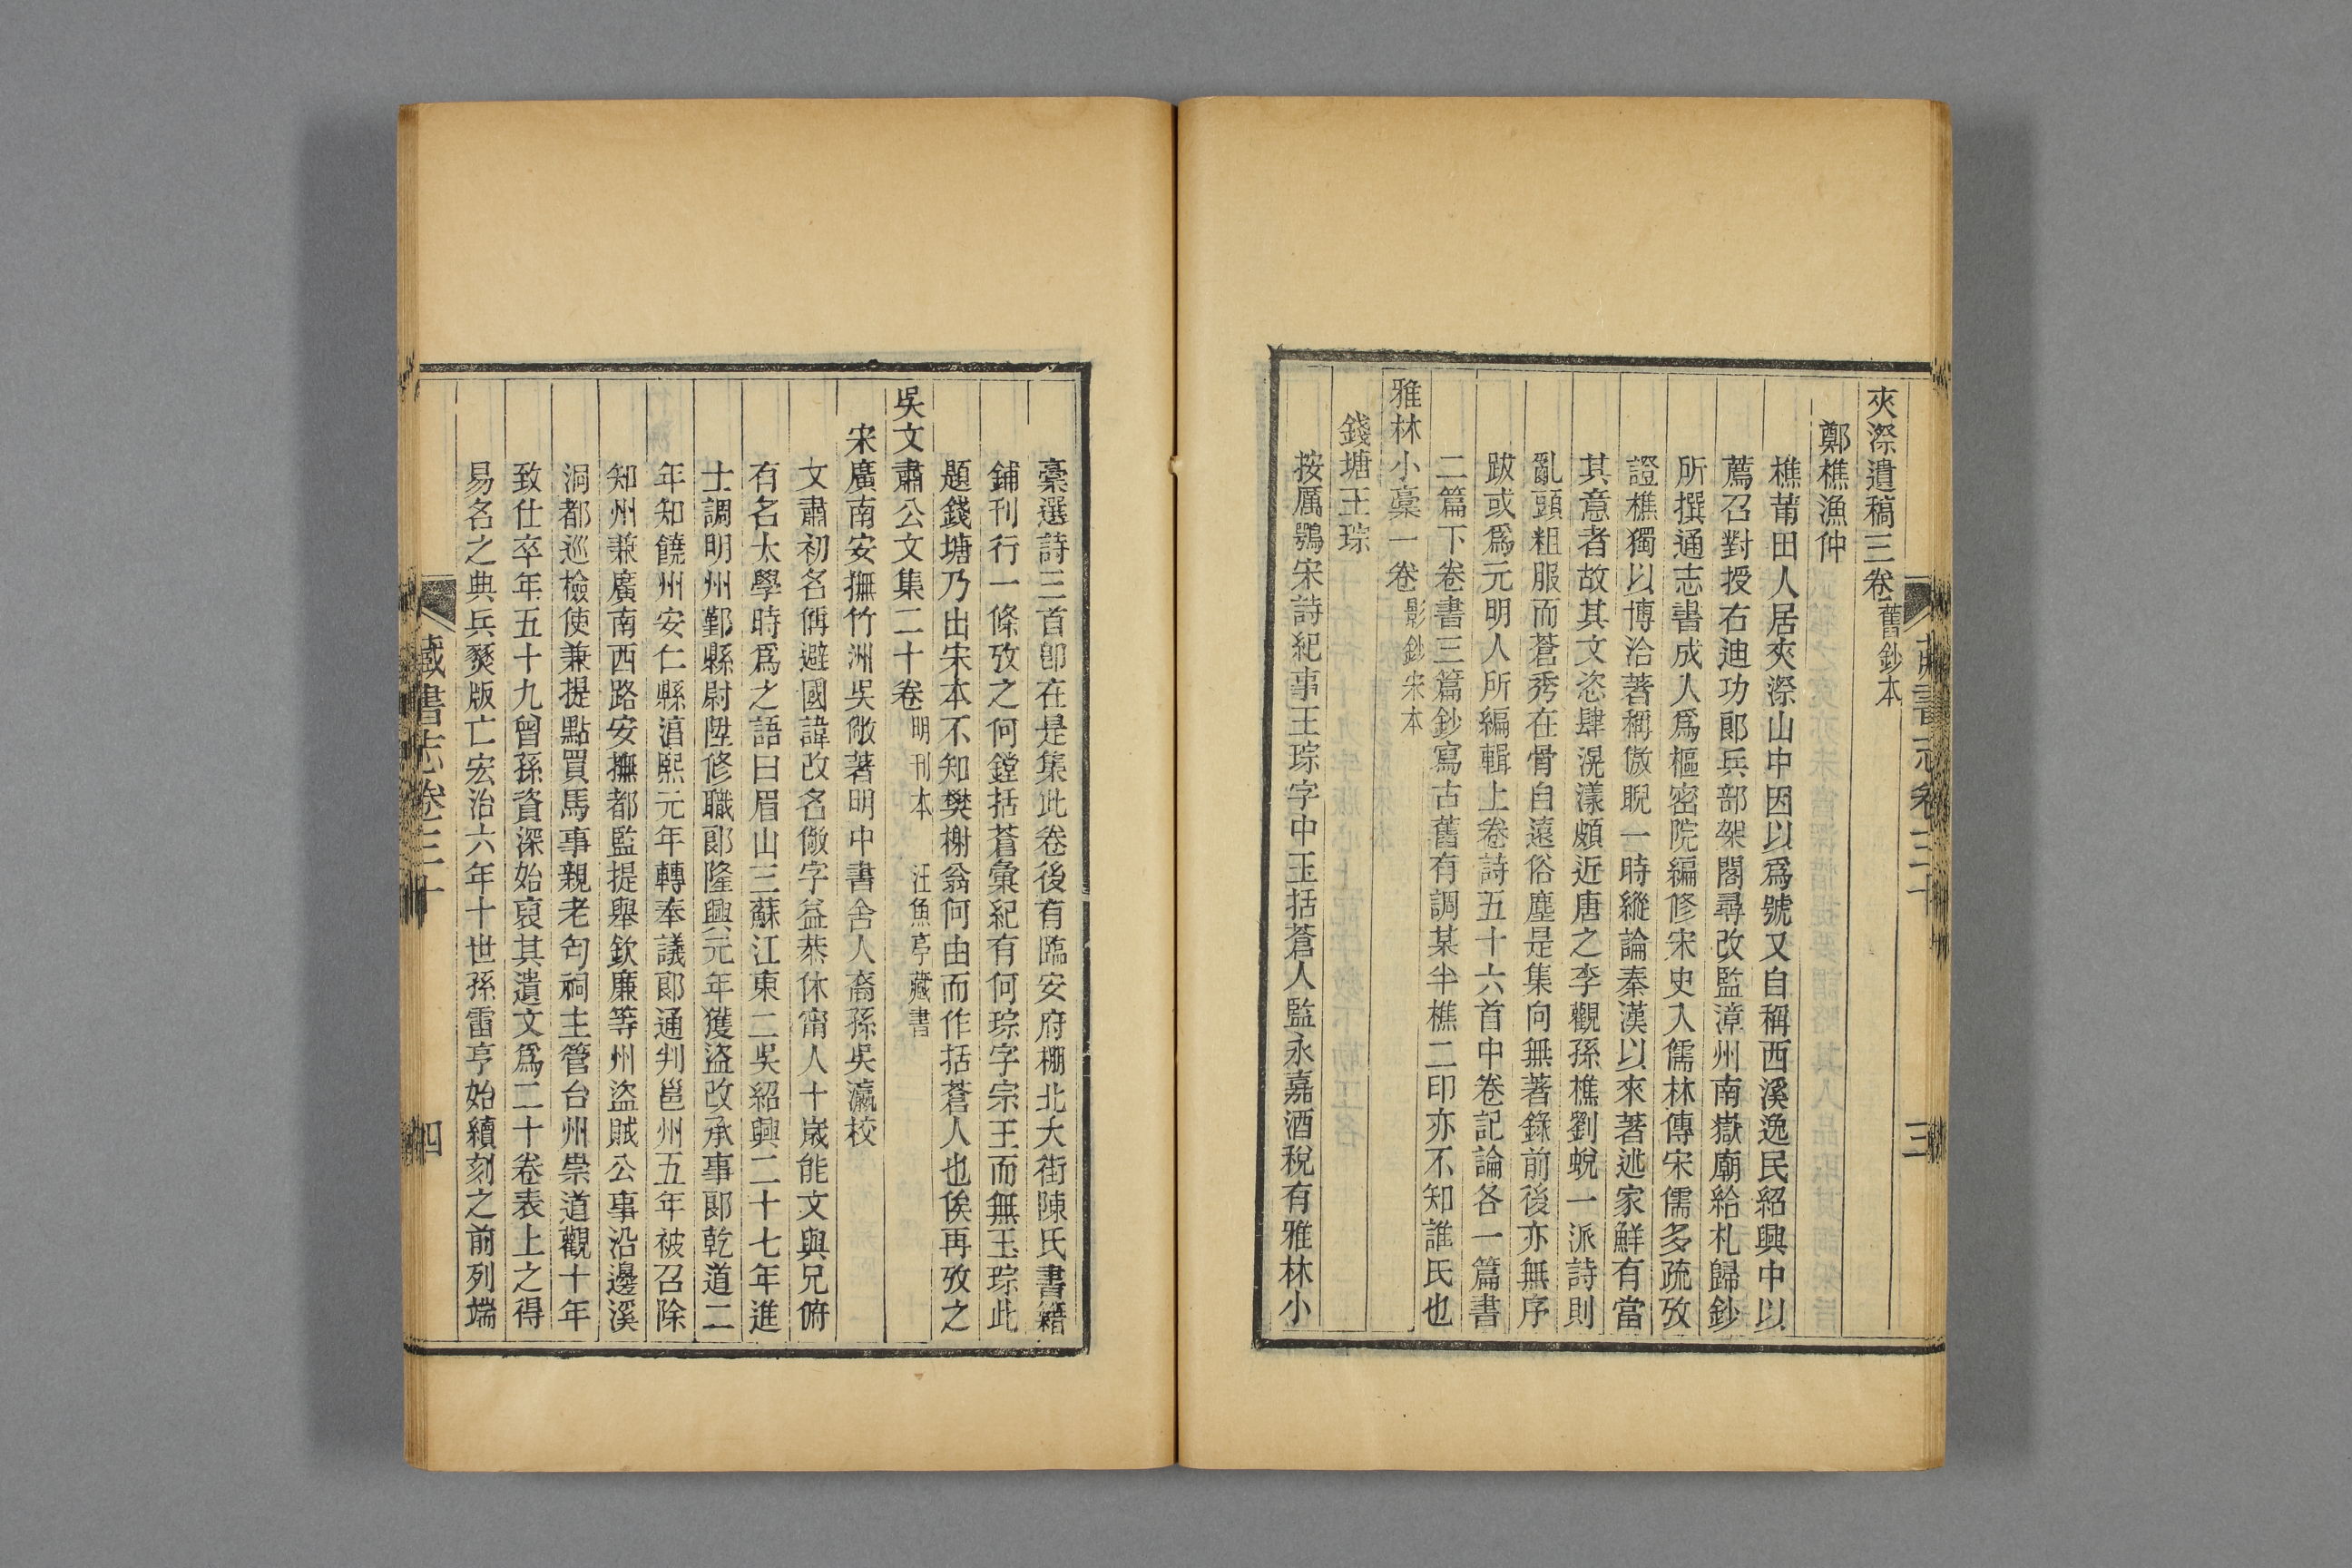 夾漈遺稿三卷舊鈔本
鄭樵漁仲
樵莆田人居夾漈山中因以爲號又自稱西溪逸民紹興中以
薦召對授右迪功郞兵部架閣尋改監潭州南嶽廟給札歸鈔
所撰通志書成人爲樞密院編修宋史入儒林傳宋儒多疏攷
證樵獨以博洽著稱傲睨一時縱論秦漢以來著述家鮮有當
其意者故其文恣肆滉漾頗近唐之李觀孫樵劉蛻一派詩則
亂頭粗服而蒼秀在骨自遠俗塵是集向無著錄前後亦無序
跋或爲元明人所編輯上卷詩五十六首中卷記論各一篇書
二篇下卷書三篇鈔寫古舊有調某半樵二印亦不知誰氏也
雅林小稾一卷影鈔宋本
錢塘王琮
按厲鶚宋詩紀事王琮字中玉括蒼人監永嘉酒稅有雅林小
藏書志卷三十
三
稾選詩三首卽在是集此卷後有臨安府棚北大街陳氏書籍
鋪刊行一條攷之何鏜括蒼彙紀有何琮字宗王而無王琮此
題錢塘乃出宋本不知樊榭翁何由而作括蒼人也俟再攷之
吳文肅公文集二十卷明刊本 汪魚亭藏書
宋廣南安撫竹洲吳儆著明中書舍人裔孫吳瀛校
文肅初名偁避國諱改名儆字益恭休甯人十歲能文與兄俯
有名太學時爲之語曰眉山三蘇江東二吳紹興二十七年進
士調明州鄞縣尉陞修職郞隆興元年獲盜改承事郞乾道二
年知饒州安仁縣淯熙元年轉奉議郞通判邕州五年被召除
知州兼廣南西路安撫都監提舉欽廉等州盜賊公事沿邊溪
洞都巡檢使兼提點買馬事親老匄祠主管台州崇道觀十年
致仕卒年五十九曾孫資深始裒其遺文爲二十卷表上之得
易名之典兵燹版亡宏治六年十世孫雷亨始續刻之前列端
藏書志卷三十
四